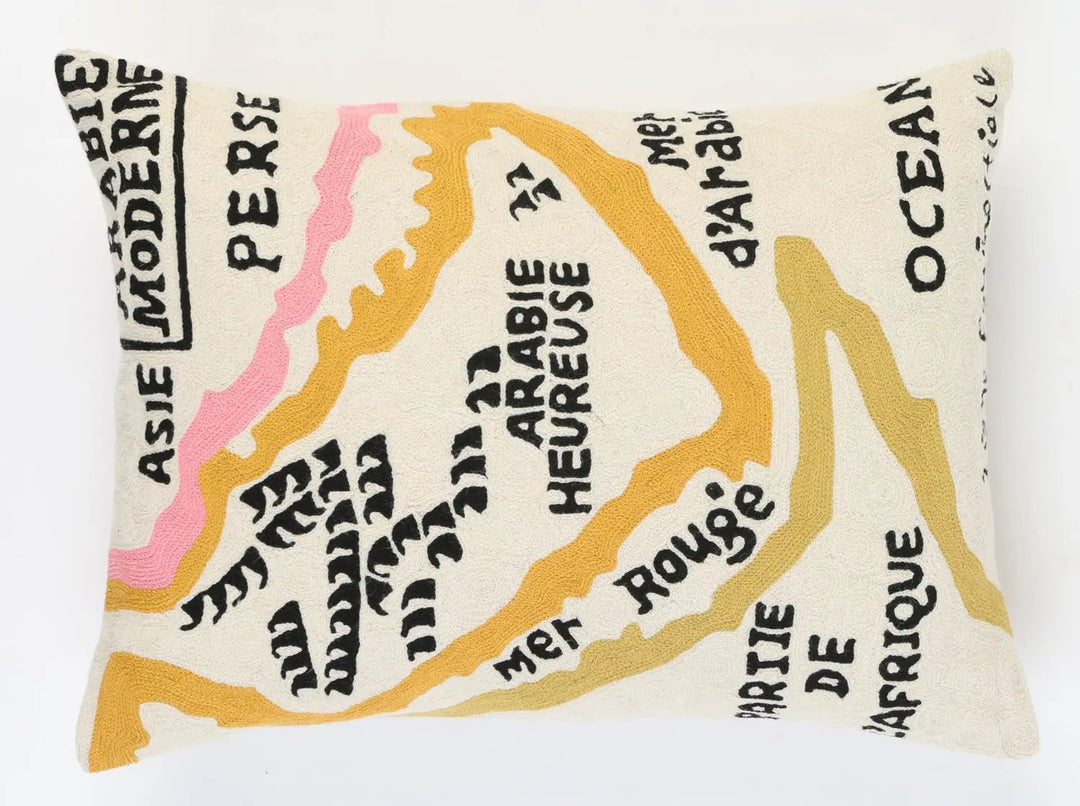 ARABIE
MODERNE
PERSE
ASIE
ARABIE
HEUREUSE
Mer
d'Arabi
OCEAN
Mer Rougé
PARTIE
DE
L'AFRIQUE